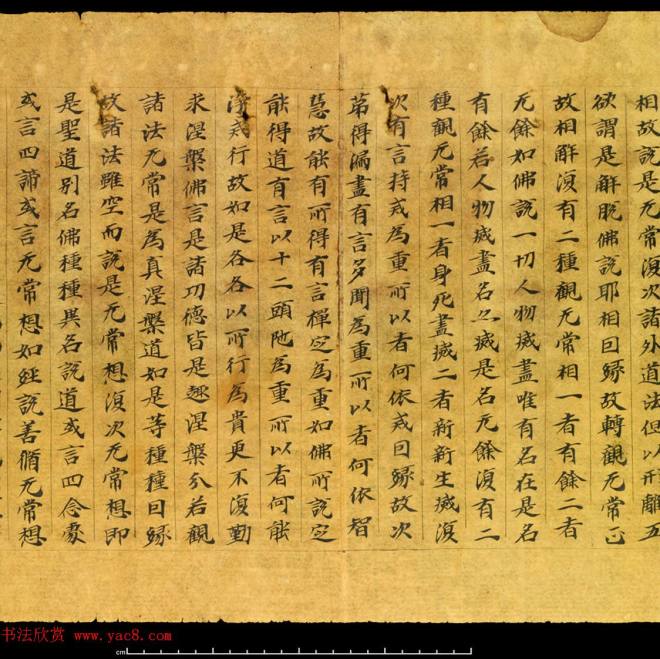 相故說是无常復次諸外道法但以形離五
欲謂是解脫佛說耶相因緣故轉觀无常正
故相解復有二種觀无常相一者有餘二者
无餘如佛說一切人物滅盡唯有名在是名
有餘若人物滅盡名亦滅是名无餘復有二
種觀无常相一者身死盡滅二者新新生滅復
次有言持戒為重所以者何依戒因緣故次
苐得漏盡有言多聞為重所以者何依智
慧故能有所得有言禪定為重如佛所說定
能得道有言以十二頭陁為重所以者何能
淨戒行故如是各各以所行為貴更不復勤
求涅槃佛言是諸功德皆是趣涅槃分若觀
諸法无常是為真涅槃道如是等種種因緣
故諸法雖空而說是无常想復次无常想即
是聖道別名佛種種異名說道或言四念處
或言四諦或言无常想如經說善脩无常想
书法欣赏 www.yac8.com
cm